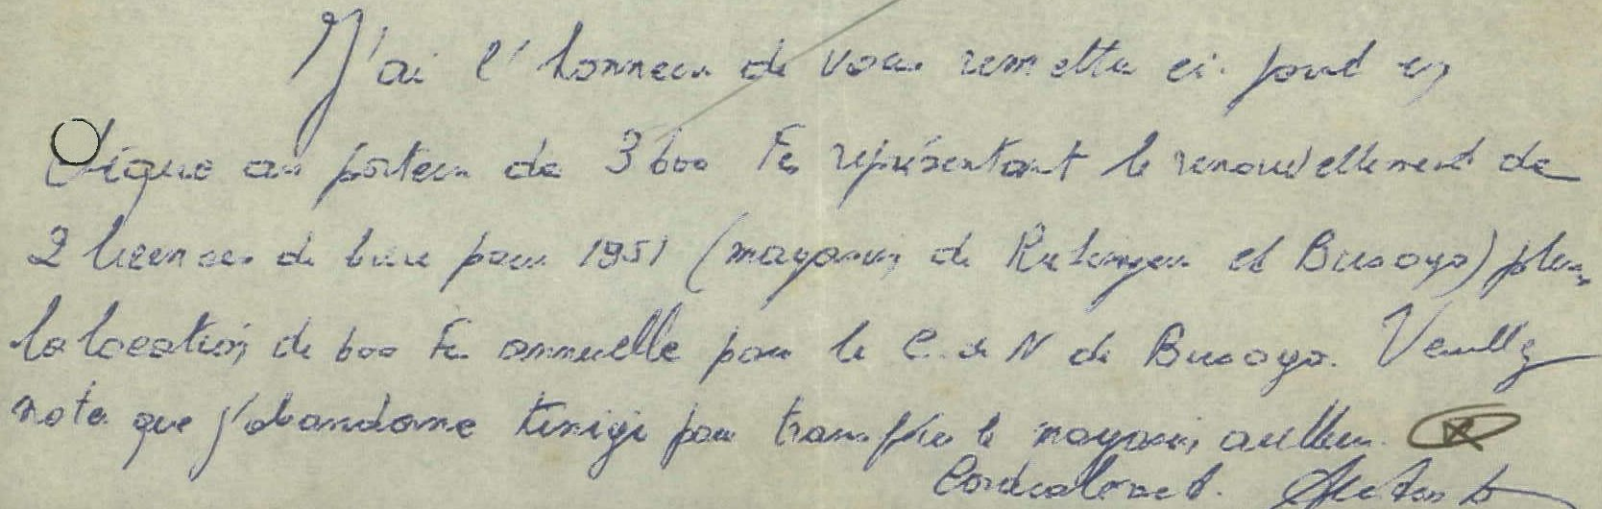 J'ai l'honneur de vous remettre ci-joint un
chèque au porteur de 3600 Frs représentant le renouvellement de
2 licences de bière pour 1951 (magasins de Rutongo et Busoyo) plus
la location de 600 Frs annuelle pour le C. de N de Busoyo. Veuillez
noter que j'abandonne Kinigi pour transférer le magasin ailleurs.
Cordialement.